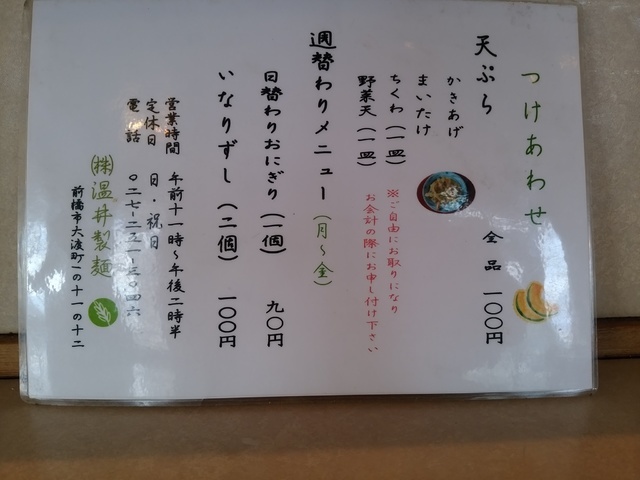 つけあわせ
天ぷら 全品 一〇〇円
かきあげ
まいたけ
ちくわ(一皿)
野菜天(一皿)
※ご自由にお取りになり
お会計の際にお申し付け下さい
週替わりメニュー(月~金)
日替わりおにぎり(一個) 九〇円
いなりずし(二個) 一〇〇円
営業時間 午前十一時~午後二時半
定休日 日・祝日
電話 〇二七-二五一-三〇四六
㈱温井製麺
前橋市大渡町一の十一の十二